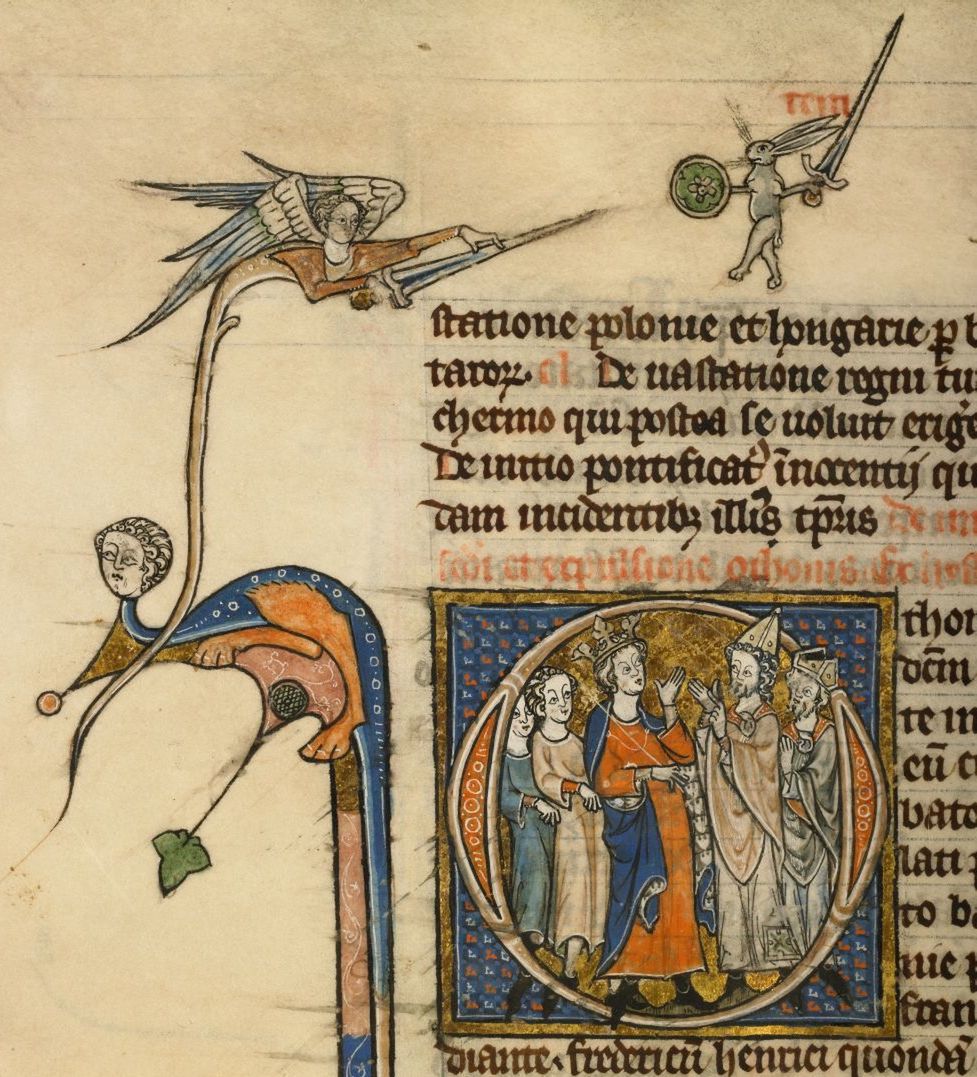 statione polonie et hongarie ꝑ
taroꝝ. De uastatione regni
chermo qui postea se uoluit erige
De initio pontificat᾽ īnocentij qu
dam incidentibꝫ illis tp̄ris
et expulsione othonis.
thon
dc̄m
te in
eū
bato
lati
to
nie
stan
diante. fredericū henrici quondā